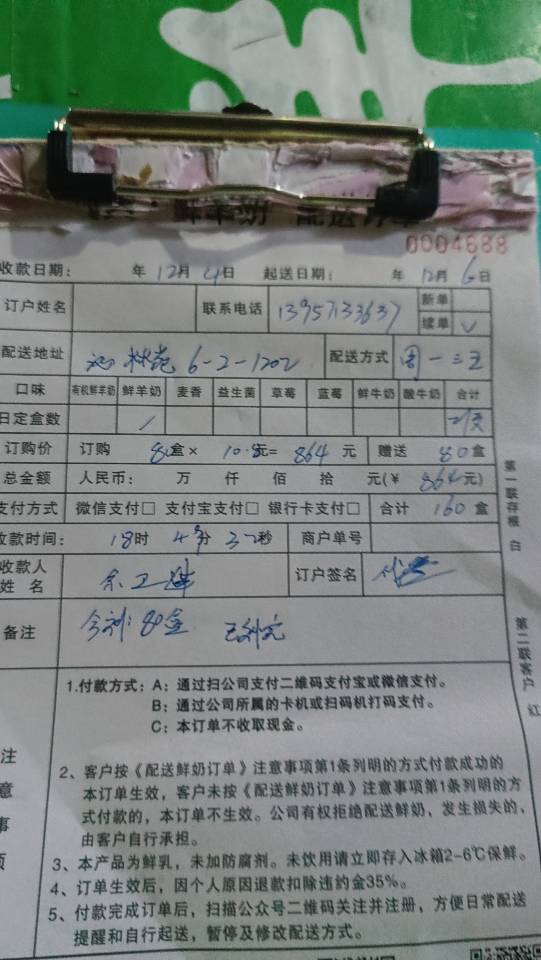 鲜羊奶 配送订单
0004688
收款日期： 年 12月 4日 起送日期： 年 12月 6日
订户姓名 联系电话 13957133637 新单
续单 √
配送地址 沁林苑 6-2-1202 配送方式 周一三五
口味 有机鲜羊奶 鲜羊奶 麦香 益生菌 草莓 蓝莓 鲜牛奶 酸牛奶 合计
日定盒数 1
订购价 订购 80盒× 10.8元= 864 元 赠送 80盒
总金额 人民币： 万 仟 佰 拾 元(￥ 864元)
支付方式 微信支付□ 支付宝支付□ 银行卡支付□ 合计 160 盒
收款时间： 18时 分 秒 商户单号
收款人
姓 名 余卫 订户签名
备注 今剩：80盒
第一联存根 白
第二联客户 红
1.付款方式：A：通过扫公司支付二维码支付宝或微信支付。
B：通过公司所属的卡机或扫码机打码支付。
C：本订单不收取现金。
2、客户按《配送鲜奶订单》注意事项第1条列明的方式付款成功的
本订单生效，客户未按《配送鲜奶订单》注意事项第1条列明的方
式付款的，本订单不生效。公司有权拒绝配送鲜奶，发生损失的，
由客户自行承担。
3、本产品为鲜乳，未加防腐剂。未饮用请立即存入冰箱2-6℃保鲜。
4、订单生效后，因个人原因退款扣除违约金35%。
5、付款完成订单后，扫描公众号二维码关注并注册，方便日常配送
提醒和自行起送，暂停及修改配送方式。
注
意
事
项